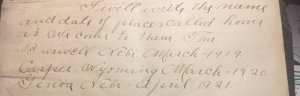 I will write the names
and date of places called home
as we come to them Tom
Burwell Nebr March - 1919.
Casper, Wyoming March - 1920
Genoa Nebr April 1921